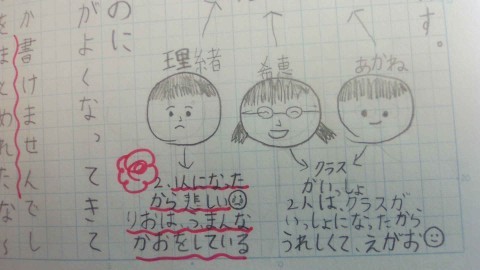 す。
のに
がよくなってきて
か書けませんでし
をまとめれたな〜
理緒
希恵
あかね
2.1人になった
から悲しい
りおは、つまんな
かおをしている
クラス
がいっしょ
2人は、クラスが
いっしょになったから
うれしくて、えがお